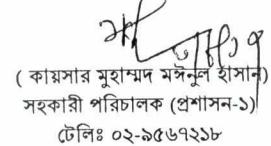 ( কায়সার মুহাম্মদ মঈনুল হাসান)
সহকারী পরিচালক (প্রশাসন-১)
টেলিঃ ০২-৯৫৬৭২১৮